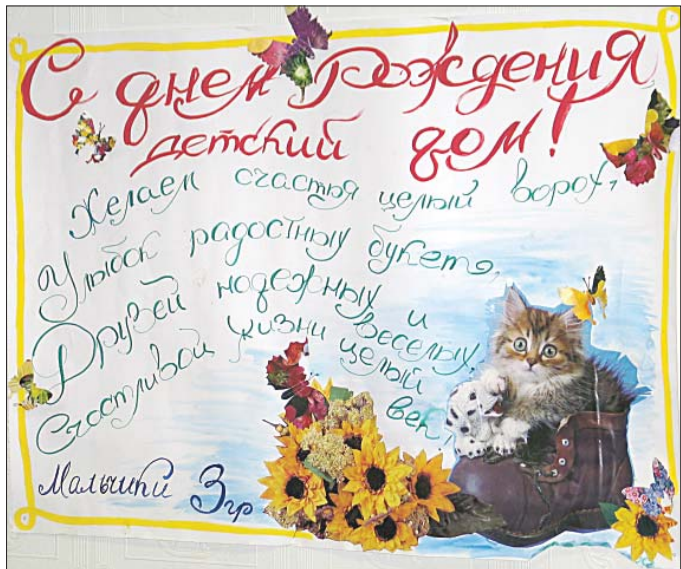 С днем Рождения
детский дом!
Желаем счастья целый ворох,
Улыбок радостных букет,
Друзей надежных и веселых,
Счастливой жизни целый век!
Малышки 3 гр